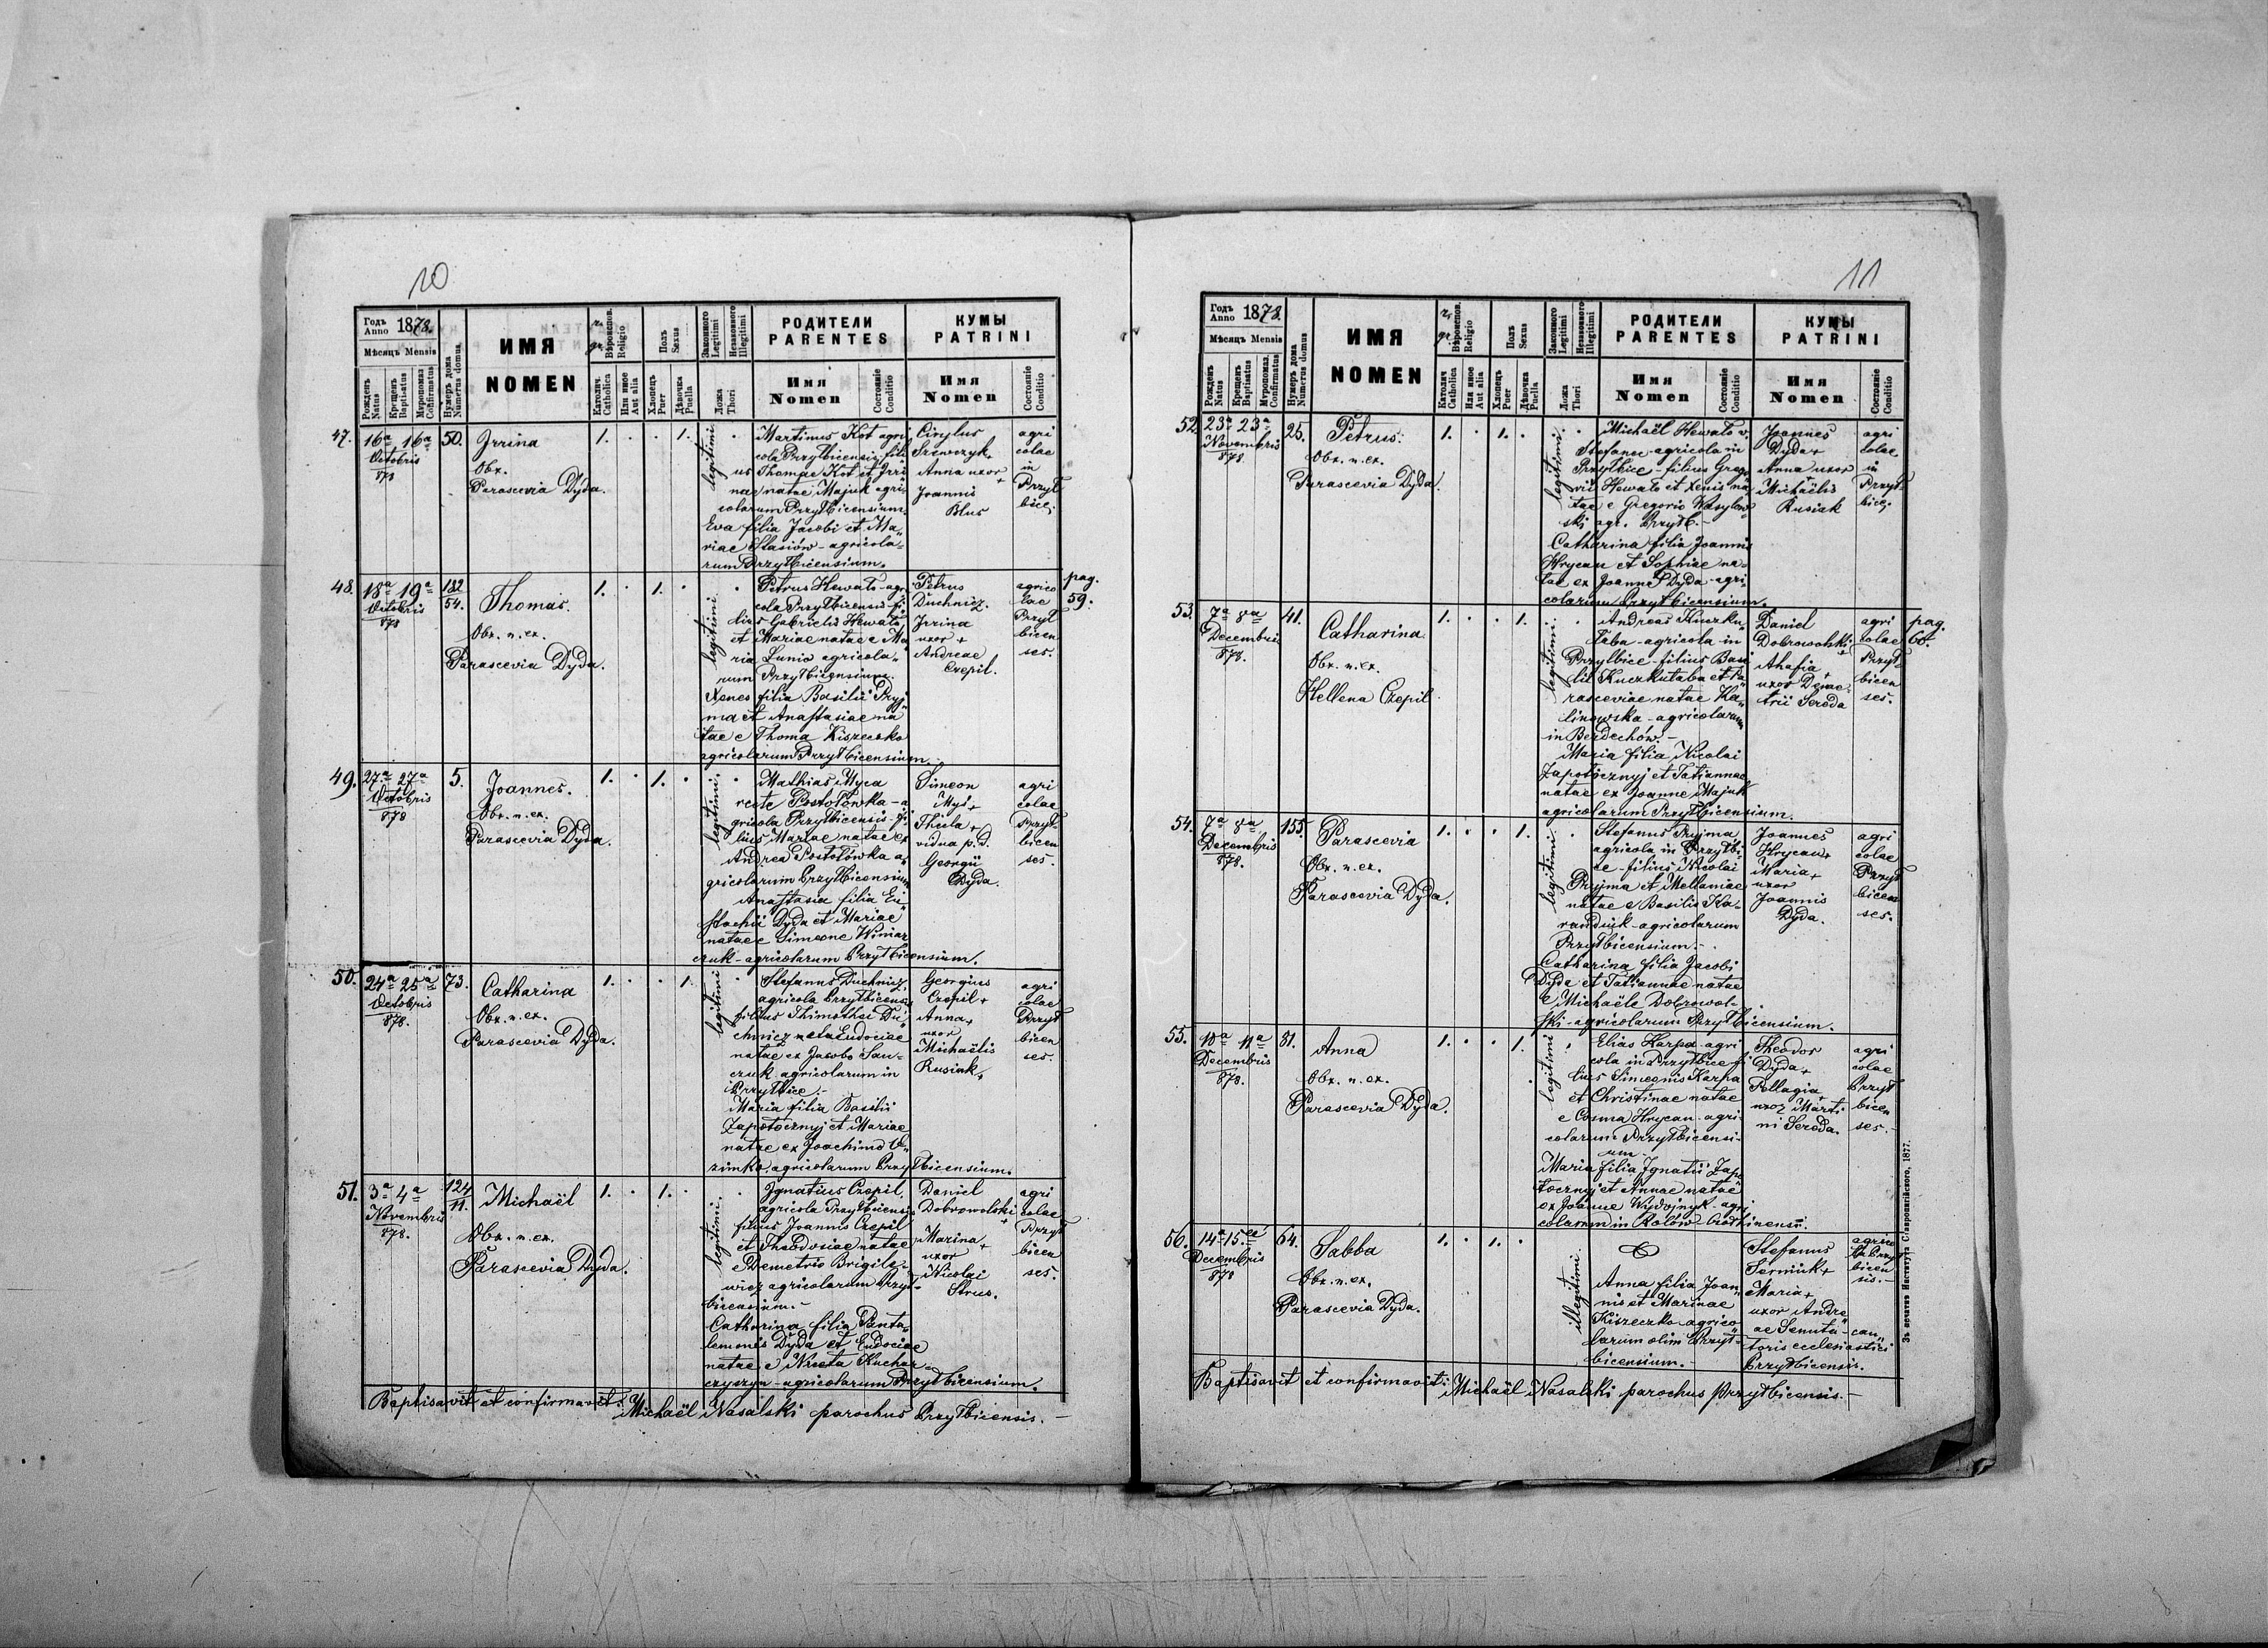 10
Годъ Anno 1878.
Мѣсяцъ Mensis
Рожденъ Natus
Крещенъ Baptisatus
Мѵропомаз. Confirmatus
Нумеръ дома Numerus domus
ИМЯ
NOMEN
r. gr.
Вѣроиспов. Religio
Католич Catholica
Или иное Aut alia
Полъ Sexus
Хлопець Puer
Дѣвочка Puella
Законного Legitimi
Незаконного Illegitimi
Ложа Thori
РОДИТЕЛИ
PARENTES
Имя Nomen
Состояніе Conditio
КУМЫ
PATRINI
Имя Nomen
Состояніе Conditio
47. 16a 16a
Octobris
878
50.
Irrina
Obx.
Parascevia Dyda.
1. . . 1.
legitimi
Martinus Kot agri
cola Przyłbicensis fili
us Thomae Kot et Irri
nae natae Majuk agri
colarum Przyłbicensium.
Eva filia Jacobi et Ma
riae Stasiów - agricola
rum Przyłbicensium.
Cirylus
Szewczyk +
Anna uxor +
Joannis
Blus
agri
colae
in
Przył
bice.
48. 18a 19a
Octobris
878
182
54.
Thomas.
Obx. n. ex.
Parascevia Dyda.
1. . 1. .
legitimi
Petrus Hewało - agri
cola Przyłbicensis fi
lius Gabrielis Hewało
et Mariae natae e Ma
ria Lunio agricola
rum Przyłbicensium.
Xenes filia Basilii Pryj
ma et Anastasiae na
tae e Thoma Kiszeczko
agricolarum Przyłbicensium.
Petrus
Duchnicz.
Irrina
uxor +
Andreae
Czepil.
agrico
lae
Przył
bicen
ses.
pag.
59.
49. 27a 27a
Octobris
878
5.
Joannes.
Obx. n. ex.
Parascevia Dyda.
1. . 1. .
legitimi.
Mathias Myca
recte Postołówka - a
gricola Przyłbicensis fi
lius Mariae natae ex
Andrea Postołówka a
gricolarum Przyłbicensium
Anastasia filia Eu
stachii Dyda et Mariae
natae e Simeone Winiar
czuk - agricolarum Przyłbicensium.
Simeon
Myś +
Thecla +
vidua p. d.
Georgii
Dyda.
agri
colae
Przył
bicen
ses.
50. 24a 25a
Octobris
878.
73.
Catharina
Obx. n. ex.
Parascevia Dyda.
1. . . 1.
legitimi
Stefanus Duchnicz,
agricola Przyłbicensis
filius Thimothei Du
chnicz et Eudociae
natae ex Jacobo Sau
czuk agricolarum in
Przyłbice. -
Maria filia Basilii
Zapotocznyj et Mariae
natae ex Joachimo
agricolarum Przyłbicensium.
Georgius
Czepil +
Anna +
uxor
Michaëlis
Rusiak.
agri
colae
Przył
bicen
ses.
51. 3a 4a
Novembris
878.
124
11.
Michaël
Obx. n. ex.
Parascevia Dyda.
1. . 1. .
legitimi.
Ignatius Czepil,
agricola Przyłbicensis
filius Joannis Czepil
et Theodosiae natae
e Demetrio Brigile
wicz agricolarum Przył
bicensium. -
Catharina filia Panta
lemonis Dyda et Eudociae
natae e Niceta Kuchar
czyszyn - agricolarum Przyłbicensium.
Daniel
Dobrowolski +
Marina +
uxor
Nicolai
Strus.
agri
colae
Przył
bicen
ses.
Baptisavit et confirmavit: Michaël Nasalski parochus Przyłbicensis. -
11
Годъ Anno 1878.
Мѣсяцъ Mensis
Рожденъ Natus
Крещенъ Baptisatus
Мѵропомаз. Confirmatus
Нумеръ дома Numerus domus
ИМЯ
NOMEN
r. gr.
Вѣроиспов. Religio
Католич Catholica
Или иное Aut alia
Полъ Sexus
Хлопець Puer
Дѣвочка Puella
Законного Legitimi
Незаконного Illegitimi
Ложа Thori
РОДИТЕЛИ
PARENTES
Имя Nomen
Состояніе Conditio
КУМЫ
PATRINI
Имя Nomen
Состояніе Conditio
52. 23a 23a
Novembris
878.
25.
Petrus.
Obx. n. ex.
Parascevia Dyda.
1. . 1. .
legitimi.
Michaël Hewało v.
Stefanu agricola in
Przyłbice - filius Grego
rii Hewało et Xenis na
tae e Gregorio Wasylow
ski agr. Przyłb. -
Catharina filia Joannis
Hrycau et Sophiae na
tae ex Joanne Dyda - agri
colarum Przyłbicensium.
Joannes
Dyda +
Anna uxor +
Michaëlis
Rusiak
agri
colae
in
Przył
bice.
53. 7a 8a
Decembris
878.
41.
Catharina
Obx. n. ex.
Hellena Czepil
1. . . 1.
legitimi.
Andreas Kuczku
taba - agricola in
Przyłbice - filius Basi
lii Kuczkutaba et Pa
rasceviae natae Ka
linowska - agricolarum
in Berdechów. -
Maria filia Nicolai
Zapotocznyj et Tatiannae
natae ex Joanne Majuk
agricolarum Przyłbicensium.
Daniel
Dobrowolski +
Ahafia
uxor Deme
trii Sereda
agri
colae
Przył
bicen
ses.
pag.
60.
54. 7a 8a
Decembris
878.
155.
Parascevia
Obx. n. ex.
Parascevia Dyda.
1. . . 1.
legitimi.
Stefanus Pryjma
agricola in Przyłbi
ce - filius Nicolai
Pryjma et Mellaniae
natae e Basilio Ka
randiuk - agricolarum
Przyłbicensium. -
Catharina filia Jacobi
Dyda et Tatiannae natae
e Michaële Dobrowol
ski - agricolarum Przyłbicensium.
Joannes
Hrycau +
Maria +
uxor
Joannis
Dyda.
agri
colae
Przył
bicen
ses.
55. 10a 11a
Decembris
878.
81.
Anna
Obx. n. ex.
Parascevia Dyda.
1. . . 1.
legitimi
Elias Karpa - agri
cola in Przyłbice fi
lius Simeonis Karpa
et Christinae natae
e Cosma Hrycau - agri
colarum Przyłbicensi
um
Maria filia Ignatii Zapo
tocznyj et Annae natae
ex Joanne Wydojnyk - agri
colarum in Rolów
Theodor
Dyda +
Pellagia +
uxor Marti
ni Sereda.
agri
colae
Przył
bicen
ses. -
56. 14a 15ae
Decembris
878
64.
Sabba
Obx. n. ex.
Parascevia Dyda.
1. . 1. .
illegitimi.
Anna filia Joan
nis et Marinae
Kiszeczko - agrico
larum olim Przył
bicensium. -
Stefanus
Serniuk +
Maria +
uxor Andre
ae Senuta - can
toris ecclesiastici
Przyłbicensis.
agrico
la Przył
bicen
sis. -
Baptisavit et confirmavit: Michaël Nasalski parochus Przyłbicensis. -
Зъ печатнѣ Института Ставропигійского. 1877.